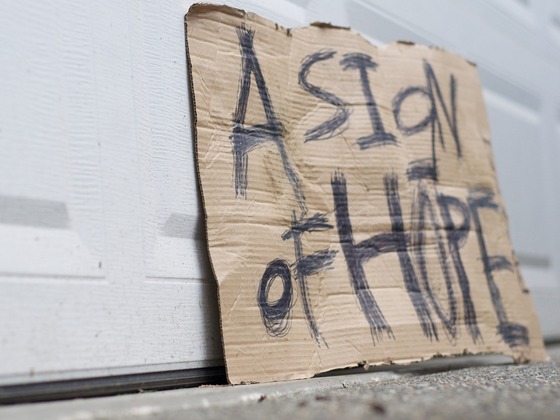 A SIGN
of HOPE